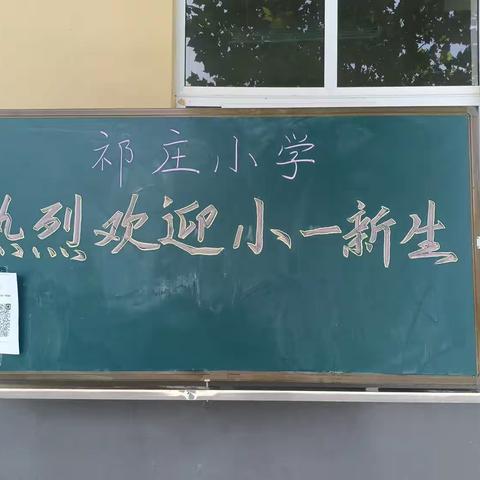 祁庄小学
热烈欢迎小一新生